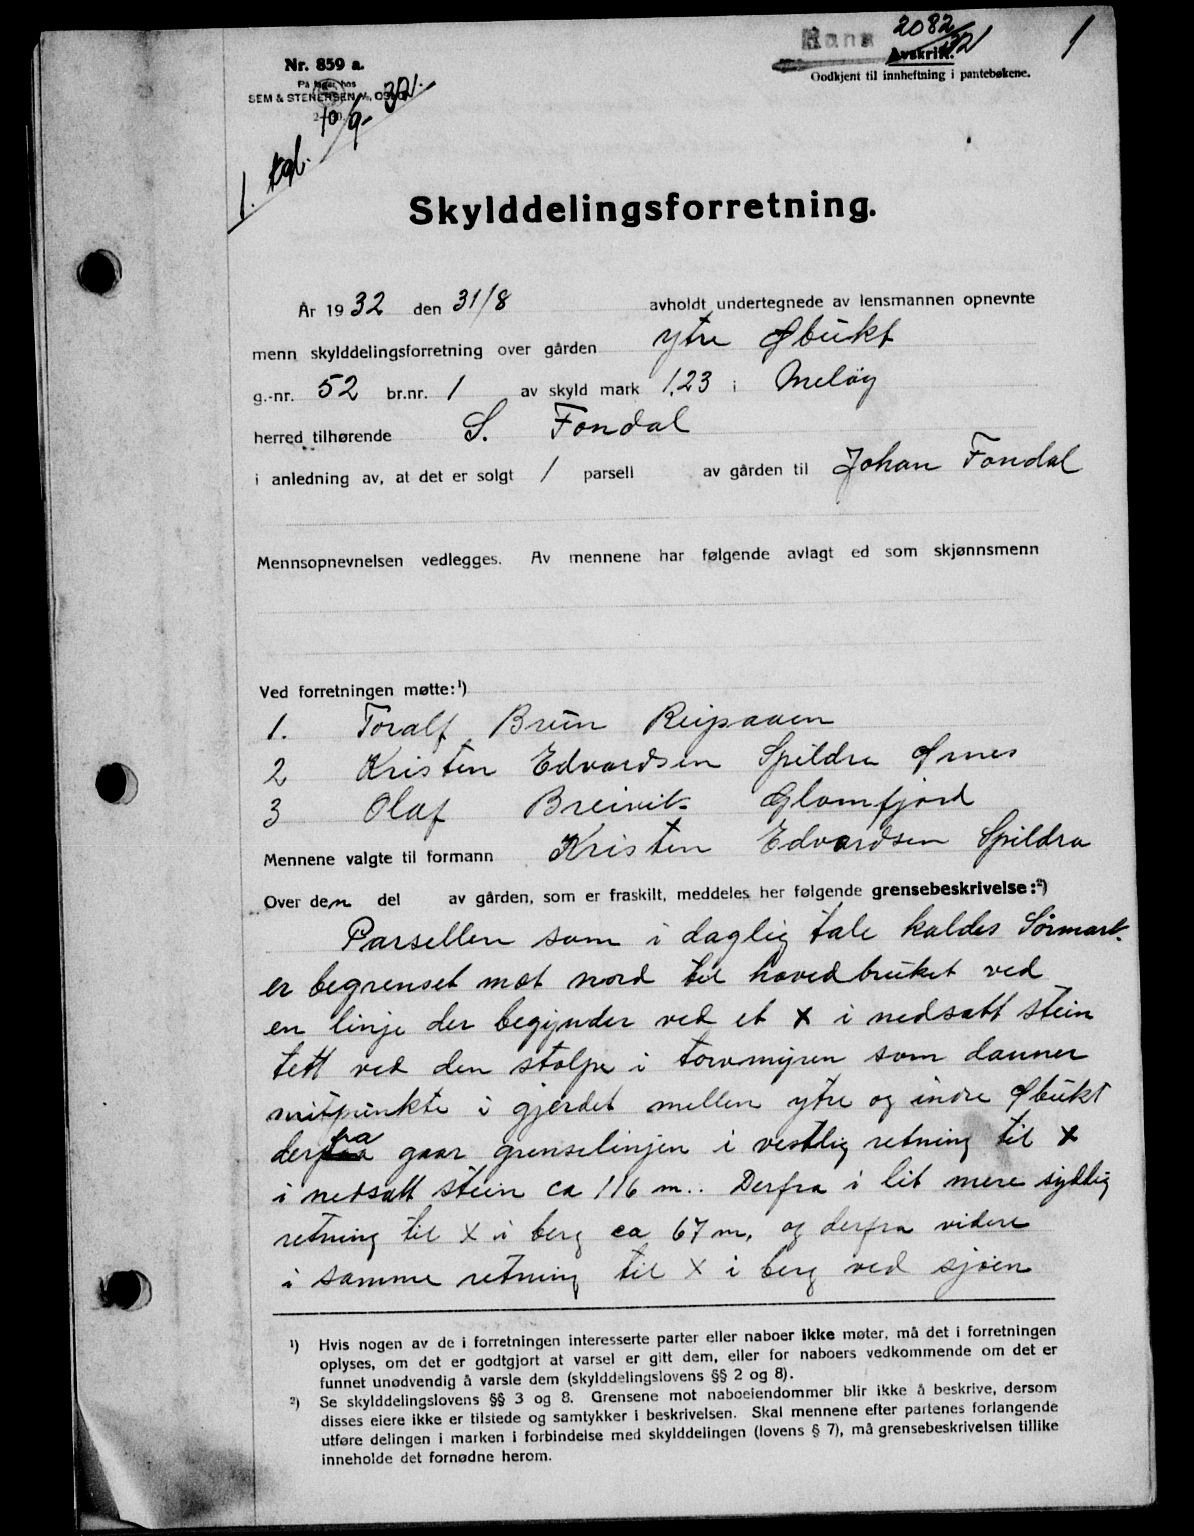 Rana
2082
Avskrift.
Godkjent til innheftning i pantebøkene.
1
Nr. 859 a.
På lager hos
SEM & STENERSEN A/S, OSLO
10/9- 32
1. tgl.
Skylddelingsforretning.
År 1932 den 31/8 avholdt undertegnede av lensmannen opnevnte
menn skylddelingsforretning over gården ytre Øbukt
g.-nr. 52 br.nr. 1 av skyld mark 1,23 i Meløy
herred tilhørende S. Fondal
i anledning av, at det er solgt 1 parsell av gården til Johan Fondal
Mennsopnevnelsen vedlegges. Av mennene har følgende avlagt ed som skjønnsmenn
Ved forretningen møtte:¹)
1. Toralf Brun Reipaaen
2 Kristen Edvardsen Spildra Ørnes
3 Olaf Breivik Glomfjord
Mennene valgte til formann Kristen Edvardsen Spildra
Over den del av gården, som er fraskilt, meddeles her følgende grensebeskrivelse:²)
Parsellen som i daglig tale kaldes Sørmark.
er begrenset mot nord til hovedbruket ved
en linje der begynder ved et x i nedsatt stein
tett ved den stolpe i torvmyren som danner
mitpunkte i gjerdet mellen ytre og indre Øbukt
derfra gaar grenselinjen i vestlig retning til x
i nedsatt stein ca 116 m.. Derfra i lit mere sydlig
retning til x i berg ca 67 m, og derfra videre
i samme retning til x i berg ved sjøen
¹) Hvis nogen av de i forretningen interesserte parter eller naboer ikke møter, må det i forretningen
oplyses, om det er godtgjort at varsel er gitt dem, eller for naboers vedkommende om det er
funnet unødvendig å varsle dem (skylddelingslovens §§ 2 og 8).
²) Se skylddelingslovens §§ 3 og 8. Grensene mot naboeiendommer blir ikke å beskrive, dersom
disses eiere ikke er tilstede og samtykker i beskrivelsen. Skal mennene efter partenes forlangende
utføre delingen i marken i forbindelse med skylddelingen (lovens § 7), må grensebeskrivelsen tillike
inneholde det fornødne herom.